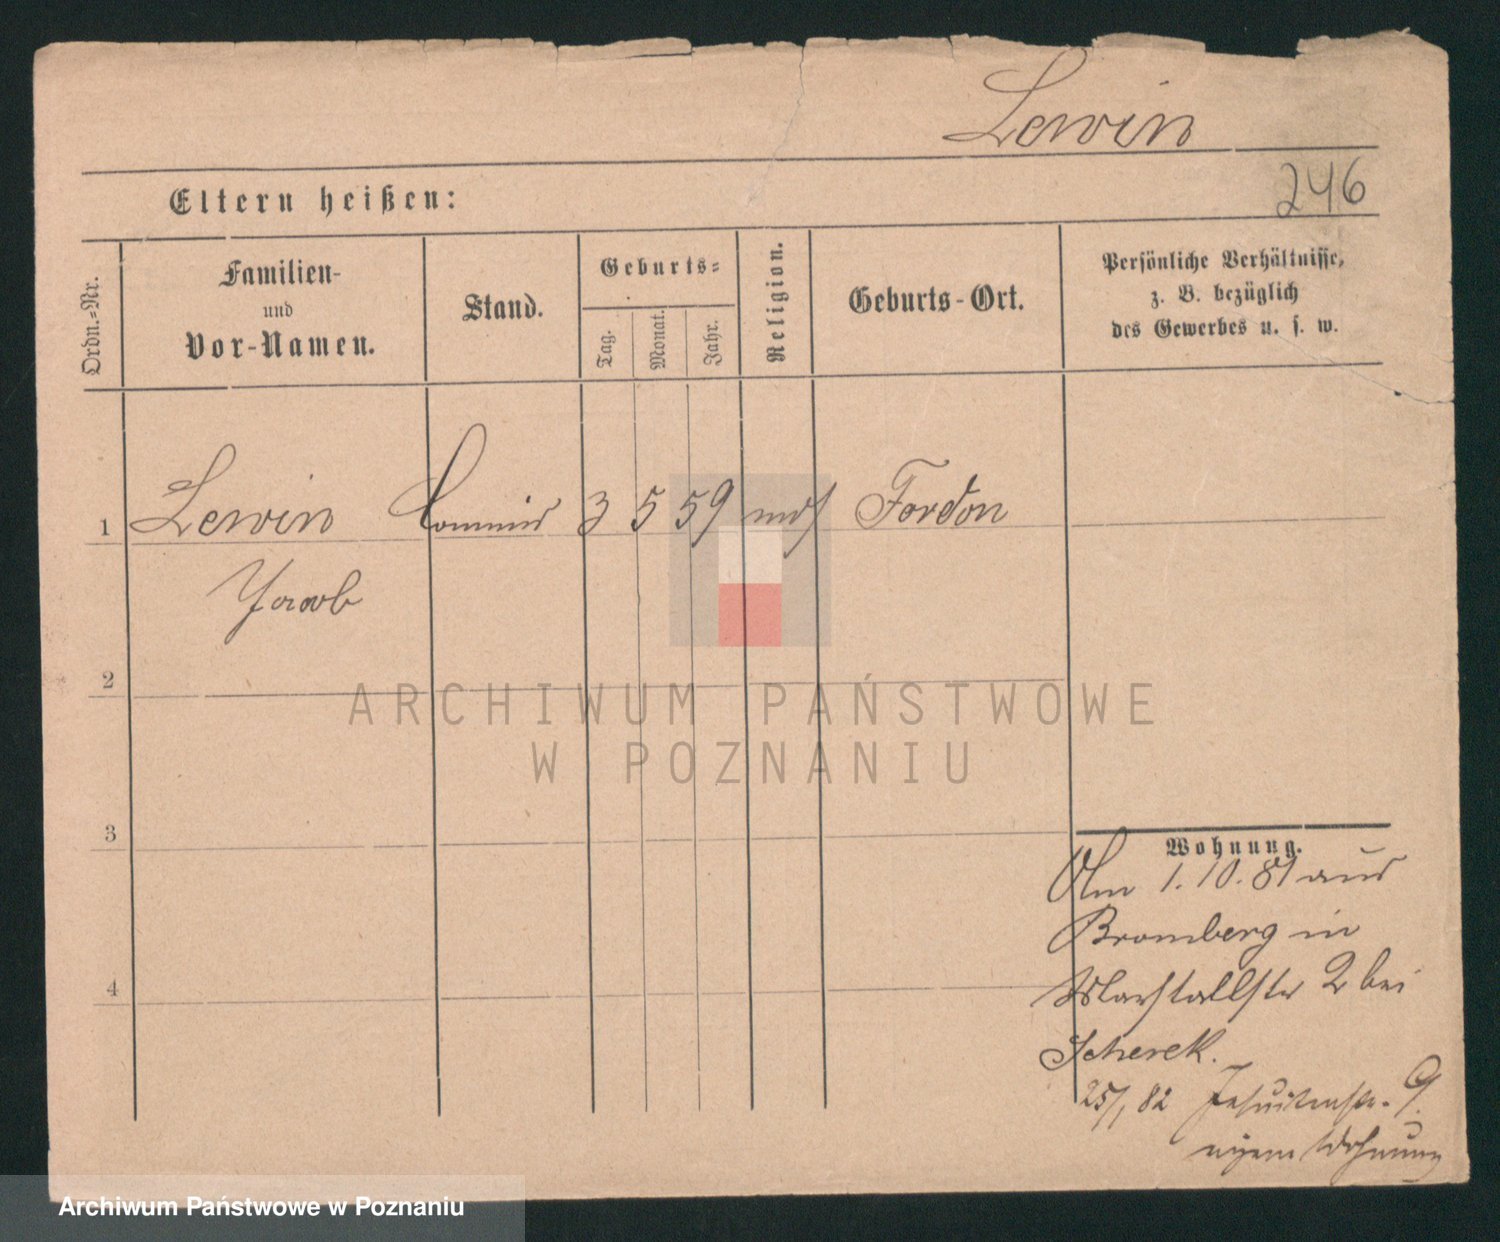 Lewin
246
Eltern heißen:
Ordn.-Nr.
Familien-
und
Vor-Namen.
Stand.
Geburts-
Tag.
Monat.
Jahr.
Religion.
Geburts-Ort.
Persönliche Verhältnisse,
z. B. bezüglich
des Gewerbes u. s. w.
1 Lewin Commis 3 5 59 mos Fordon
Jacob
2
3
4
Wohnung.
Am 1. 10. 81 aus
Bromberg in
Marstallstr 2 bei
Scherek.
25/1 82 Jesuitenstr. 9.
eigene Wohnung
ARCHIWUM PAŃSTWOWE
W POZNANIU
Archiwum Państwowe w Poznaniu